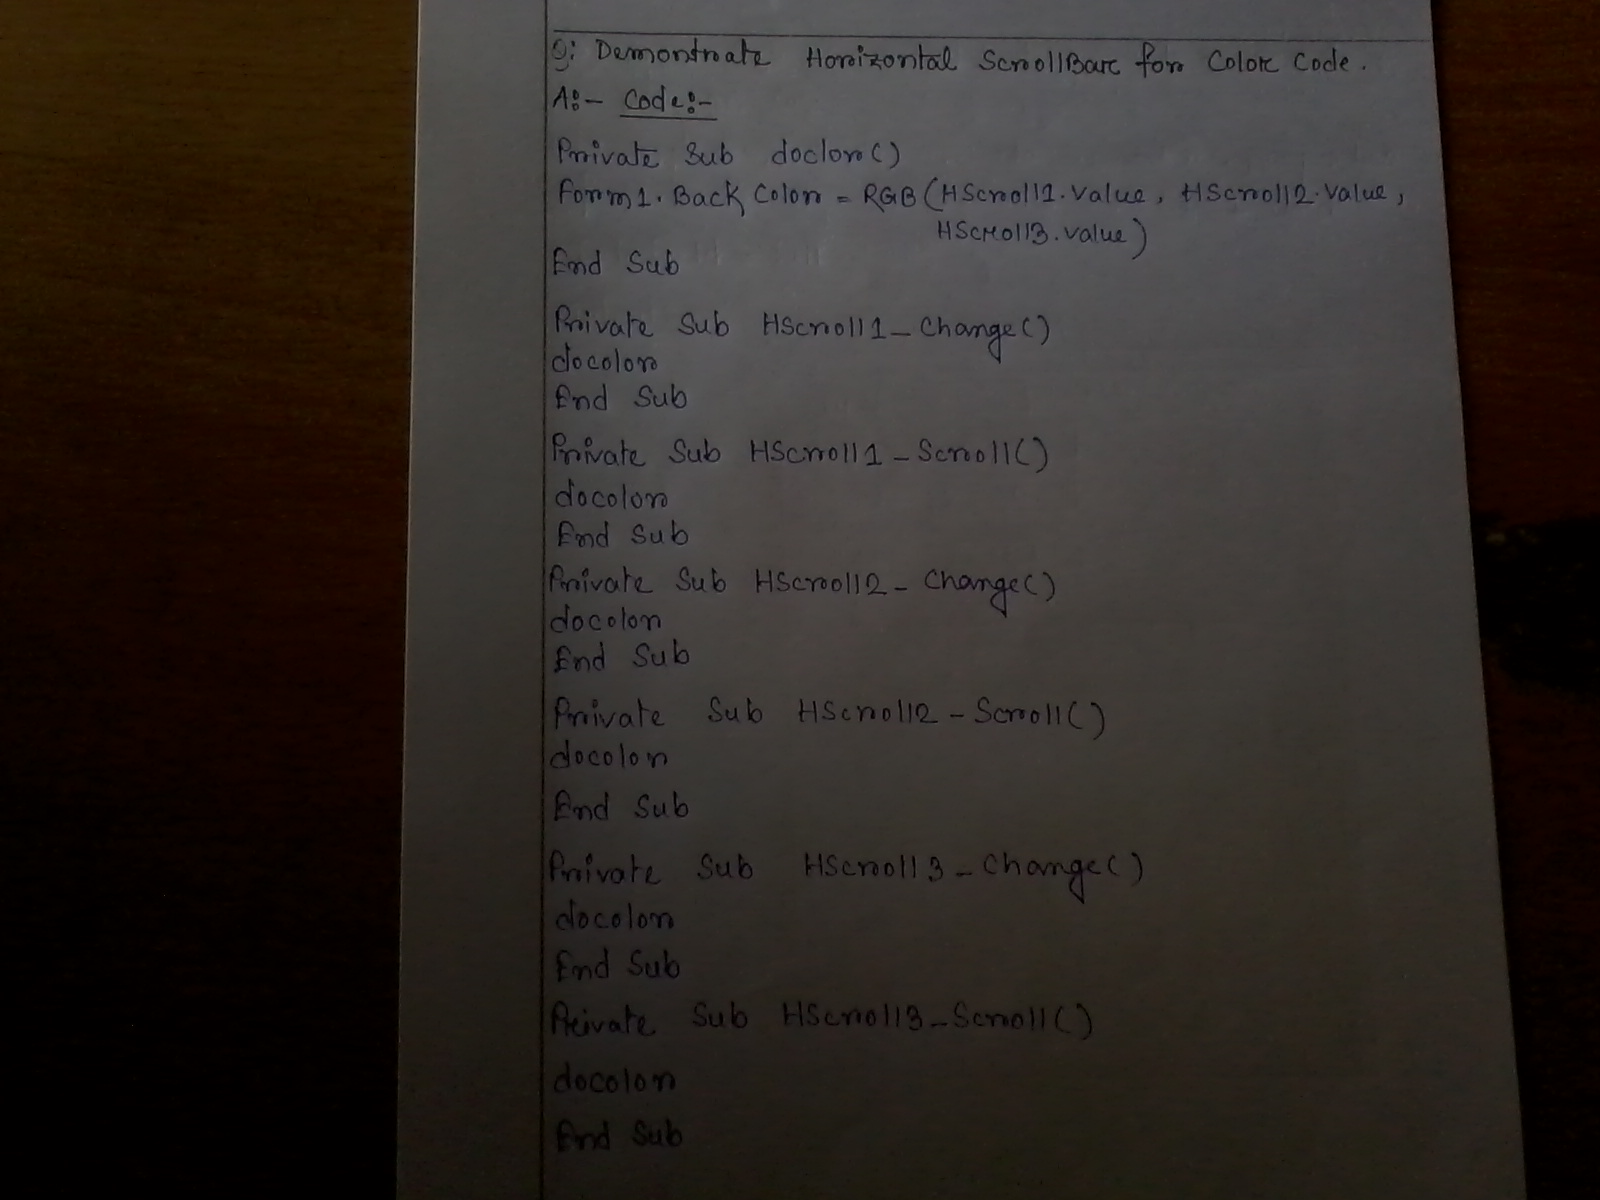 Q: Demontrate Horizontal ScrollBar for Color Code.
A:- Code:-
Private Sub doclor()
Form1.BackColor = RGB(HScroll1.Value, HScroll2.Value,
HScroll3.value)
End Sub
Private Sub HScroll1_Change()
docolor
End Sub
Private Sub HScroll1_Scroll()
docolor
End Sub
Private Sub HScroll2_Change()
docolor
End Sub
Private Sub HScroll2_Scroll()
docolor
End Sub
Private Sub HScroll3_Change()
docolor
End Sub
Private Sub HScroll3_Scroll()
docolor
End Sub